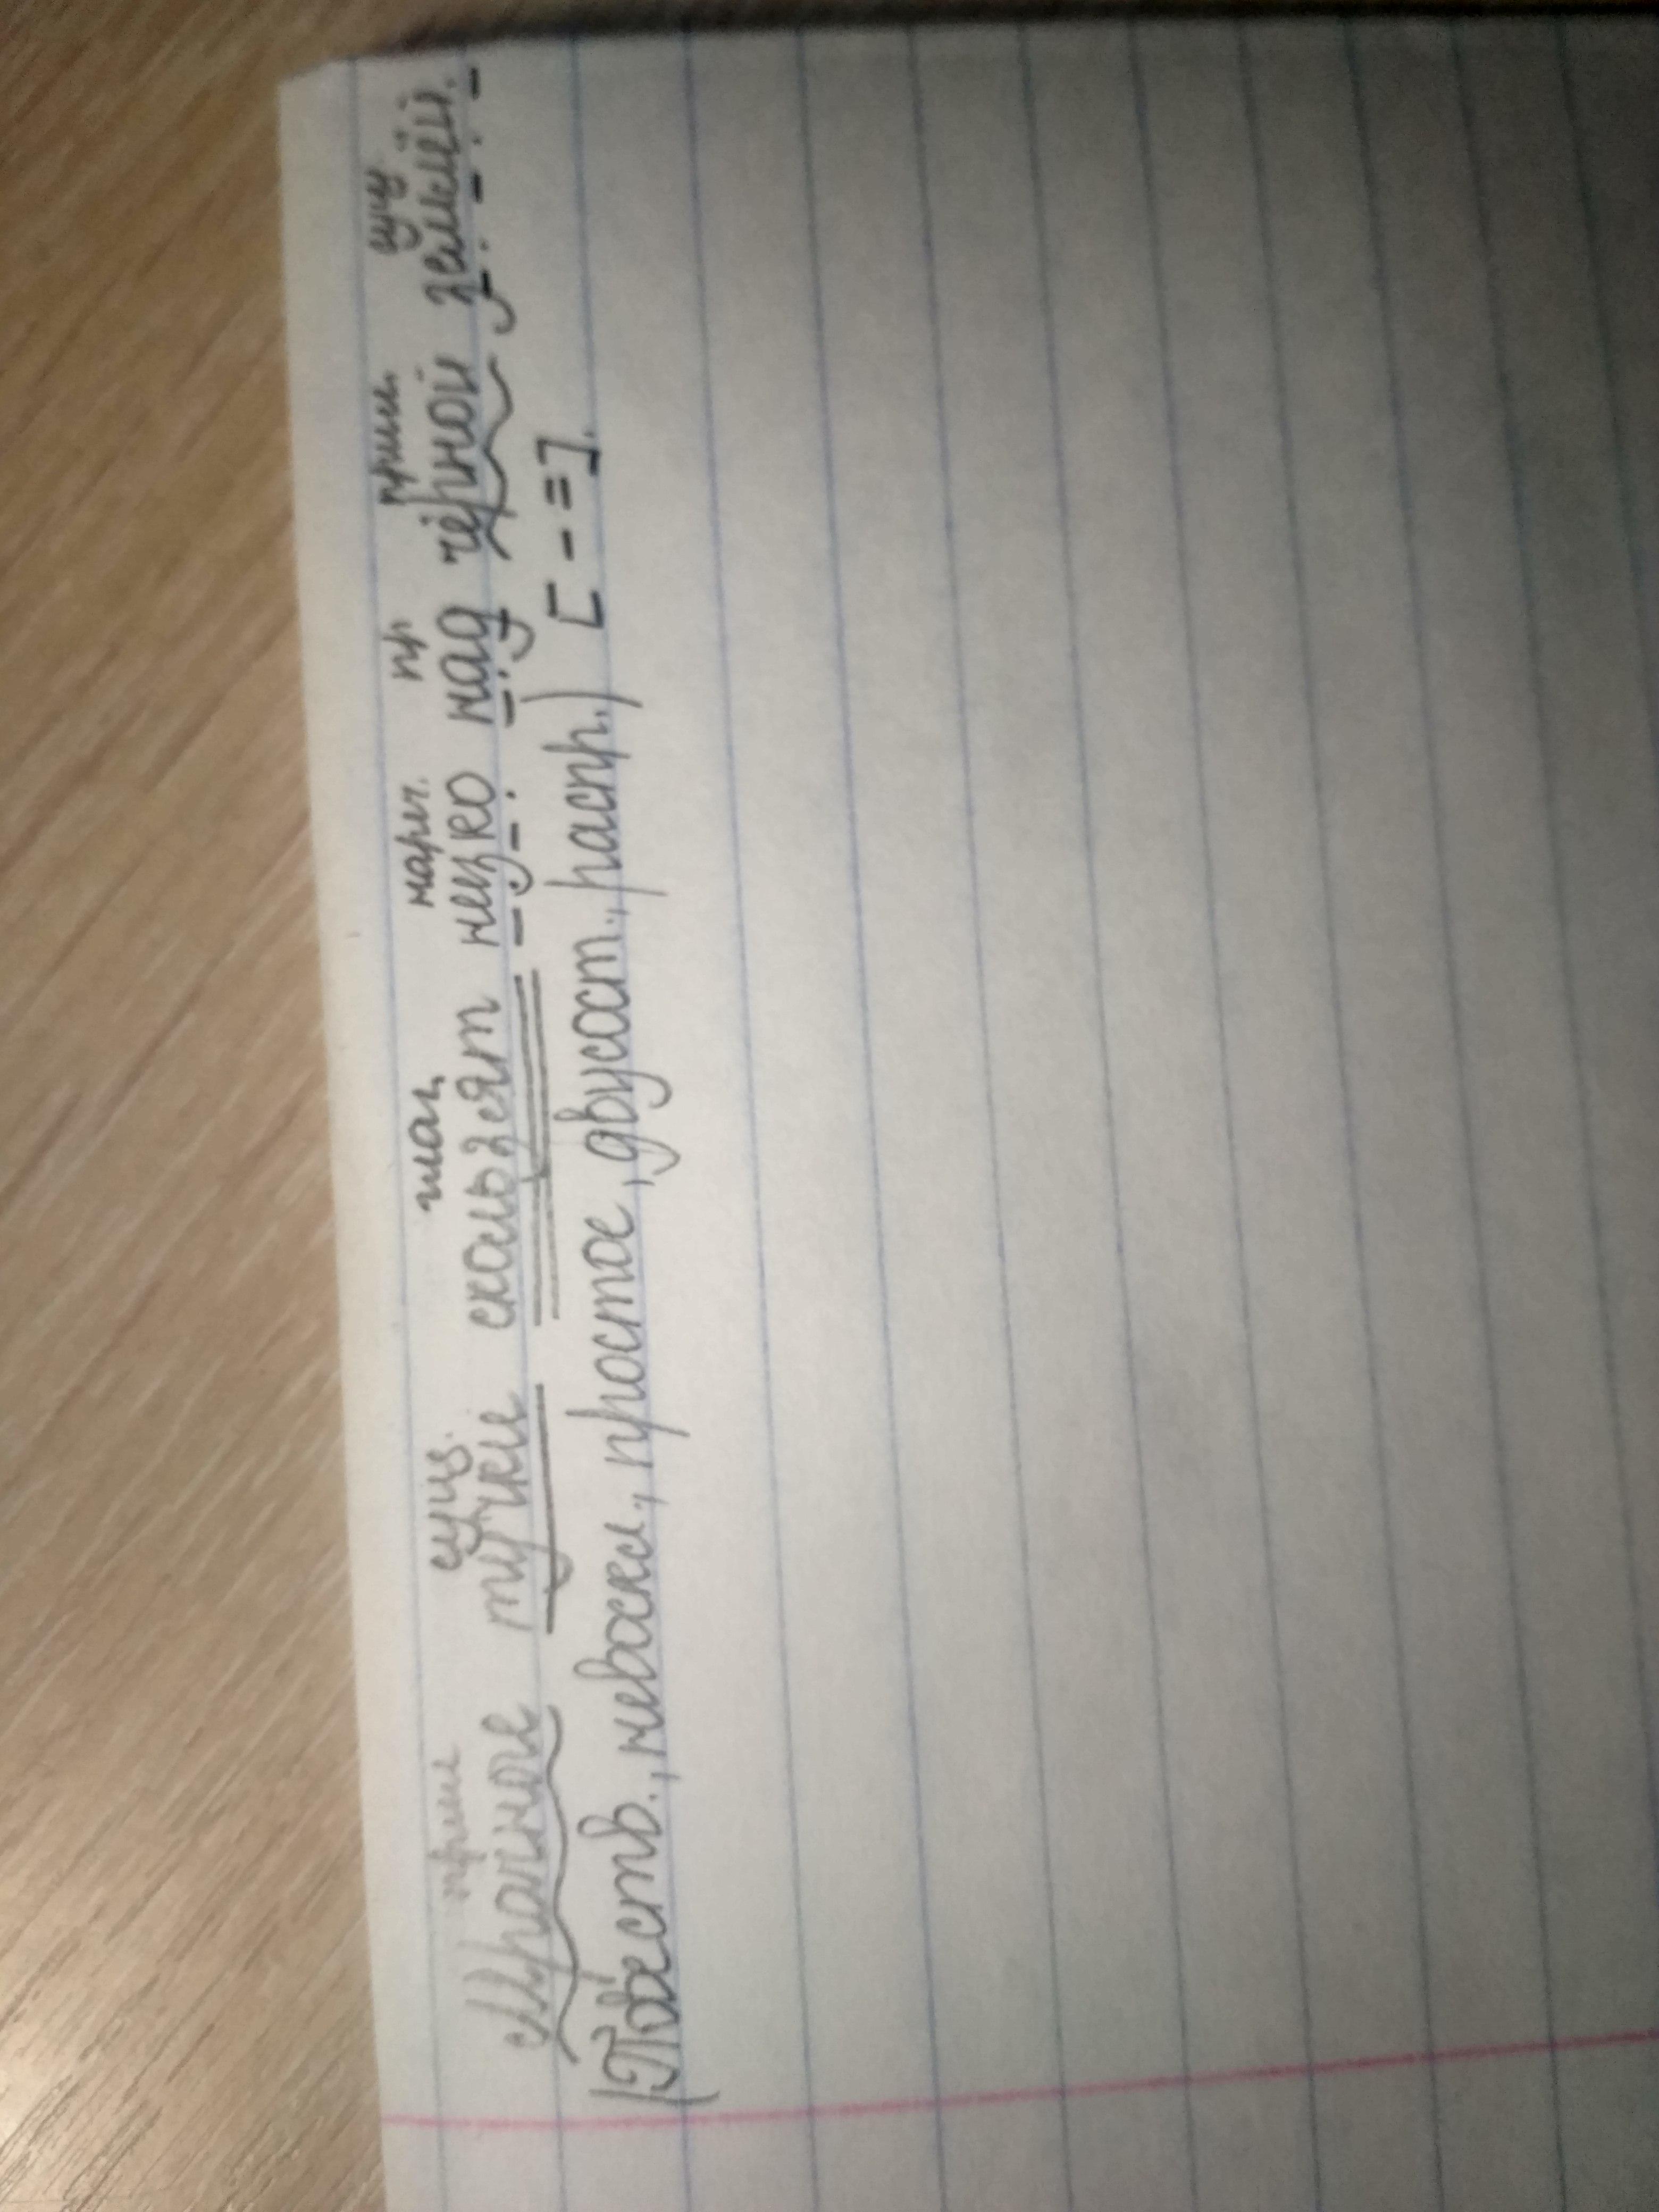 прил сущ. глаг. нареч. пр прил. сущ
Мрачные тучки скользят низко над чёрной землёй.
(Повеств., невоскл., простое, двусост., распр.) [ - = ].